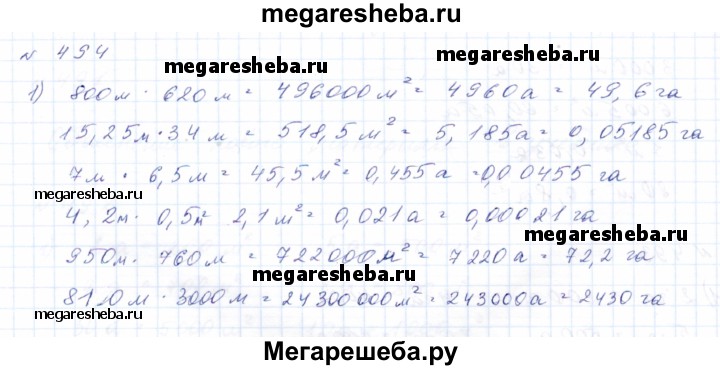 megaresheba.ru
№ 494
megaresheba.ru
1) 800м · 620м = 496000м² = 4960а = 49,6га
15,25м · 34м = 518,5м² = 5,185а = 0,05185га
7м · 6,5м = 45,5м² = 0,455а = 0,00455га
megaresheba.ru
4,2м · 0,5м 2,1м² = 0,021а = 0,00021га
megaresheba.ru
950м · 760м = 722000м² = 7220а = 72,2га
megaresheba.ru
8100м · 3000м = 24300000м² = 243000а = 2430га
megaresheba.ru
Мегарешеба.ру